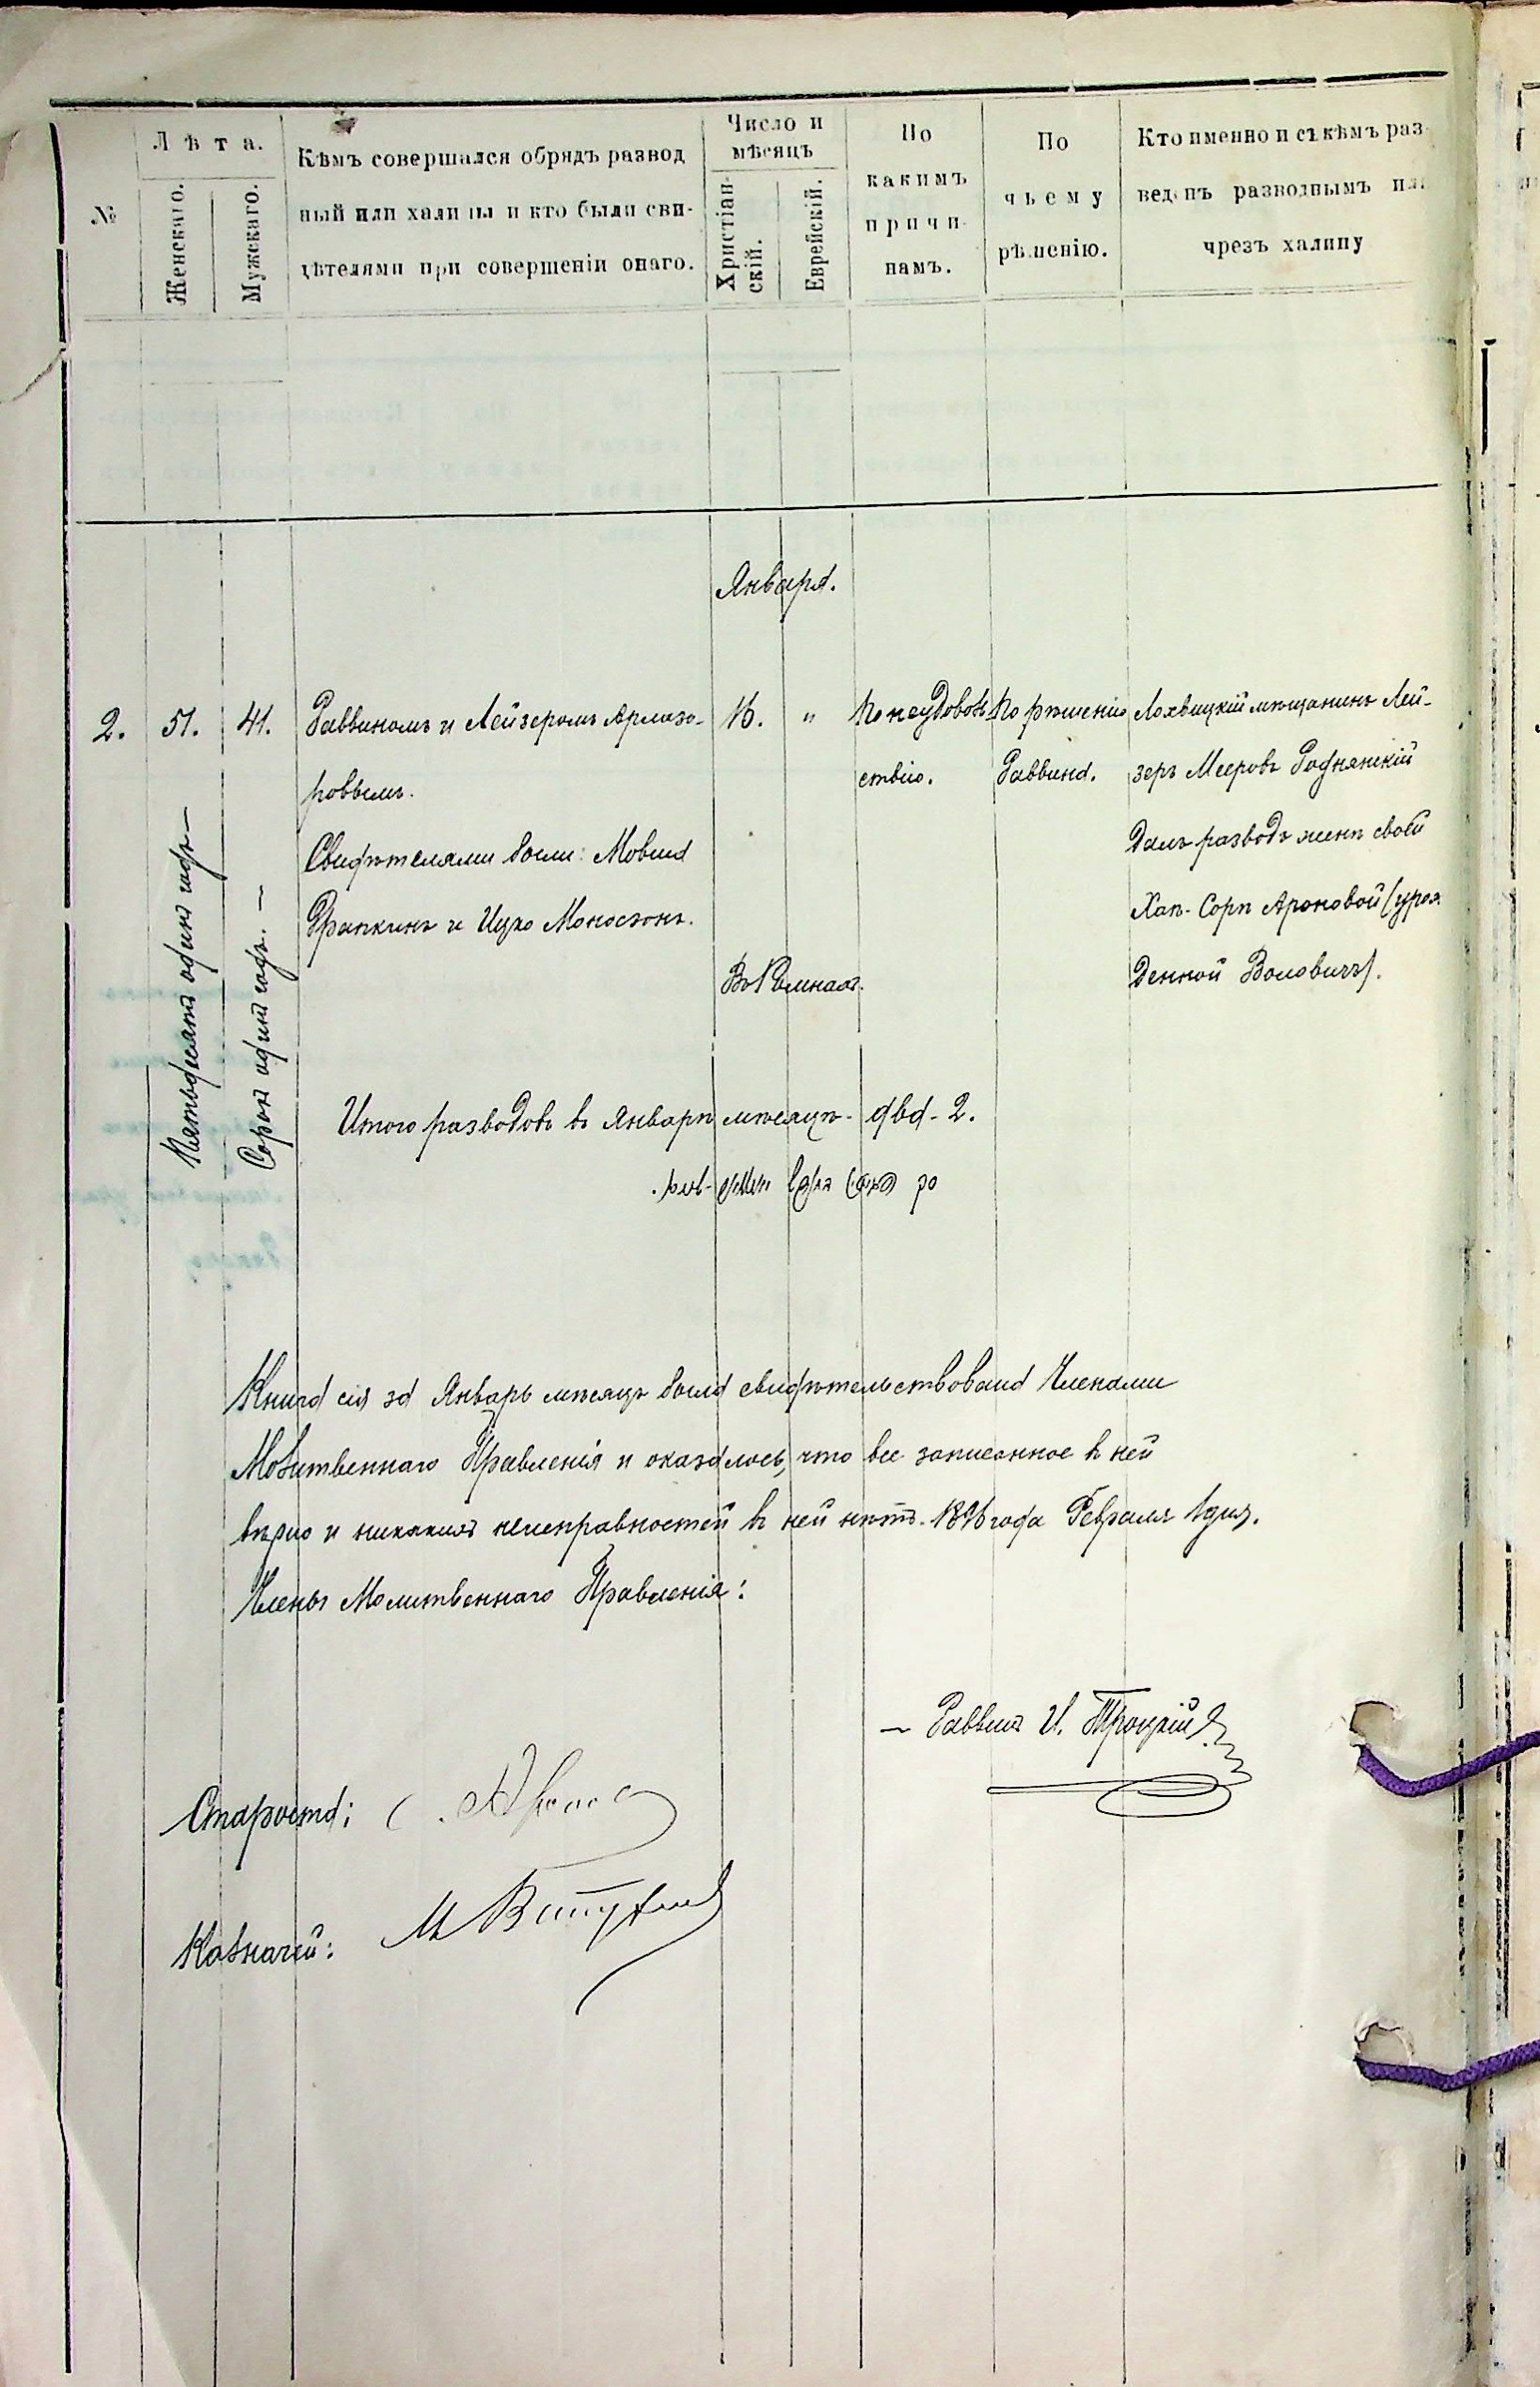 №
Лѣта.
Женскаго.
Мужскаго.
Кѣмъ совершался обрядъ развод
ный или халицы и кто были сви-
дѣтелями при совершеніи онаго.
Число и
мѣсяцъ
Христіан-
скій.
Еврейскій.
По
какимъ
причи-
намъ.
По
чьему
рѣшенію.
Кто именно и съ кѣмъ раз-
веденъ разводнымъ или
чрезъ халицу
Января.
2. 51. 41. Раввиномъ и Лейзеромъ 16. " По неудовол По рѣшенію Лохвицкій мѣщанинъ Лей-
ствію. Раввина. зеръ Мееровъ Роднянскій
Свидѣтелями были: Мовша далъ разводъ женѣ своей
и Ицко Моносзонъ. Хаѣ-Сорѣ Ароновой (урож
Въ Ромнахъ. денной Воловичъ).
Пятьдесятъ одинъ годъ —
Сорокъ одинъ годъ. —
Итого разводовъ въ Январѣ мѣсяцѣ - два - 2.
Книга сія за Январь мѣсяцъ была свидѣтельствована Членами
Молитвеннаго Правленія и оказалось, что все записанное въ ней
вѣрно и никакихъ неисправностей въ ней нѣтъ. 1896 года Февраля 1 дня.
Члены Молитвеннаго Правленія:
— Раввинъ И. Троцкій
Староста:
Казначей: М